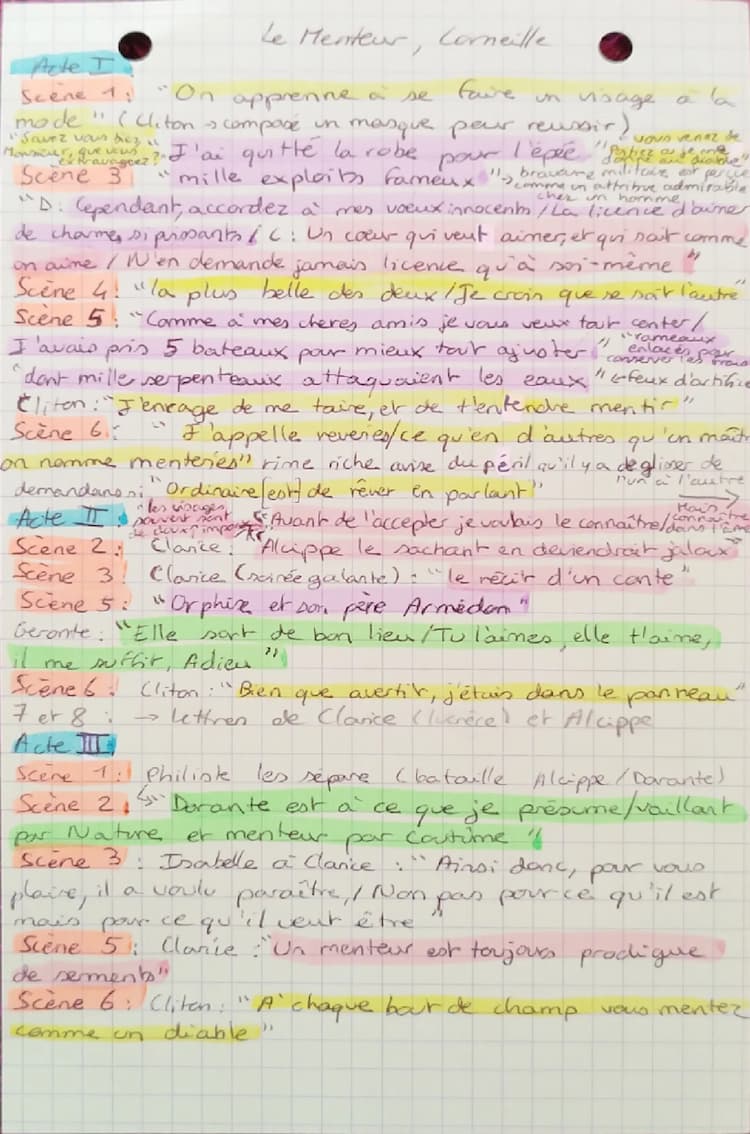 Le Menteur, Corneille
Acte I
Scène 1 : "On apprenne à se faire un visage à la
mode" (Cliton → composé un masque pour réussir)
"Savez vous bien,
Monsieur, que vous
extravaguez?"
"J'ai quitté la robe pour l'épée"
"vous venez de
Poitiers ou je me
donne au diable"
Scène 3 "mille exploits fameux" → bravoure militaire est perçue
comme un attribut admirable
chez un homme
"D : Cependant, accordez à mes voeux innocents / La licence d'aimer
de charmes si puissants / C : Un coeur qui veut aimer, et qui sait comme
on aime / N'en demande jamais licence qu'à soi-même"
Scène 4 : "la plus belle des deux / Je crois que se soit l'autre"
Scène 5 : "Comme à mes chères amis je vous veux tout conter /
J'avais pris 5 bateaux pour mieux tout ajuster"
"rameaux
enlacés pour
conserver les frais
"dont mille serpenteaux attaquaient les eaux" ← feux d'artifice
Cliton : "J'enrage de me taire, et de t'entendre mentir"
Scène 6 : "J'appelle reveries / ce qu'en d'autres qu'un maître
on nomme menteries" rime riche avise du péril qu'il y a de glisser de
demandansi "Ordinaire [est] de rêver en parlant" "un à l'autre
Acte II
"les visages
souvent sont
de doux impos
"Avant de l'accepter je voulais le connaître /
Mais connaître
dans l'âme
Scène 2 : Clarice : "Alcippe le sachant en deviendrait jaloux"
Scène 3 : Clarice (soirée galante) : "le récit d'un conte"
Scène 5 : "Orphise et son père Armédon"
Geronte : "Elle sort de bon lieu / Tu l'aimes, elle t'aime,
il me suffit, Adieu"
Scène 6 : Cliton : "Bien que avertir, j'étais dans le panneau"
7 et 8 : → Lettres de Clarice (lucrèce) et Alcippe
Acte III
Scène 1 : Philiste les sépare (bataille Alcippe / Dorante)
Scène 2 : ↳ "Dorante est à ce que je présume / vaillant
par Nature et menteur par Coutûme"
Scène 3 : Isabelle à Clarice : "Ainsi donc, pour vous
plaire, il a voulu paraître, / Non pas pour ce qu'il est
mais pour ce qu'il veut être"
Scène 5 : Clarice : "Un menteur est toujours prodigue
de serments"
Scène 6 : Cliton : "A chaque bout de champ vous mentez
comme un diable"